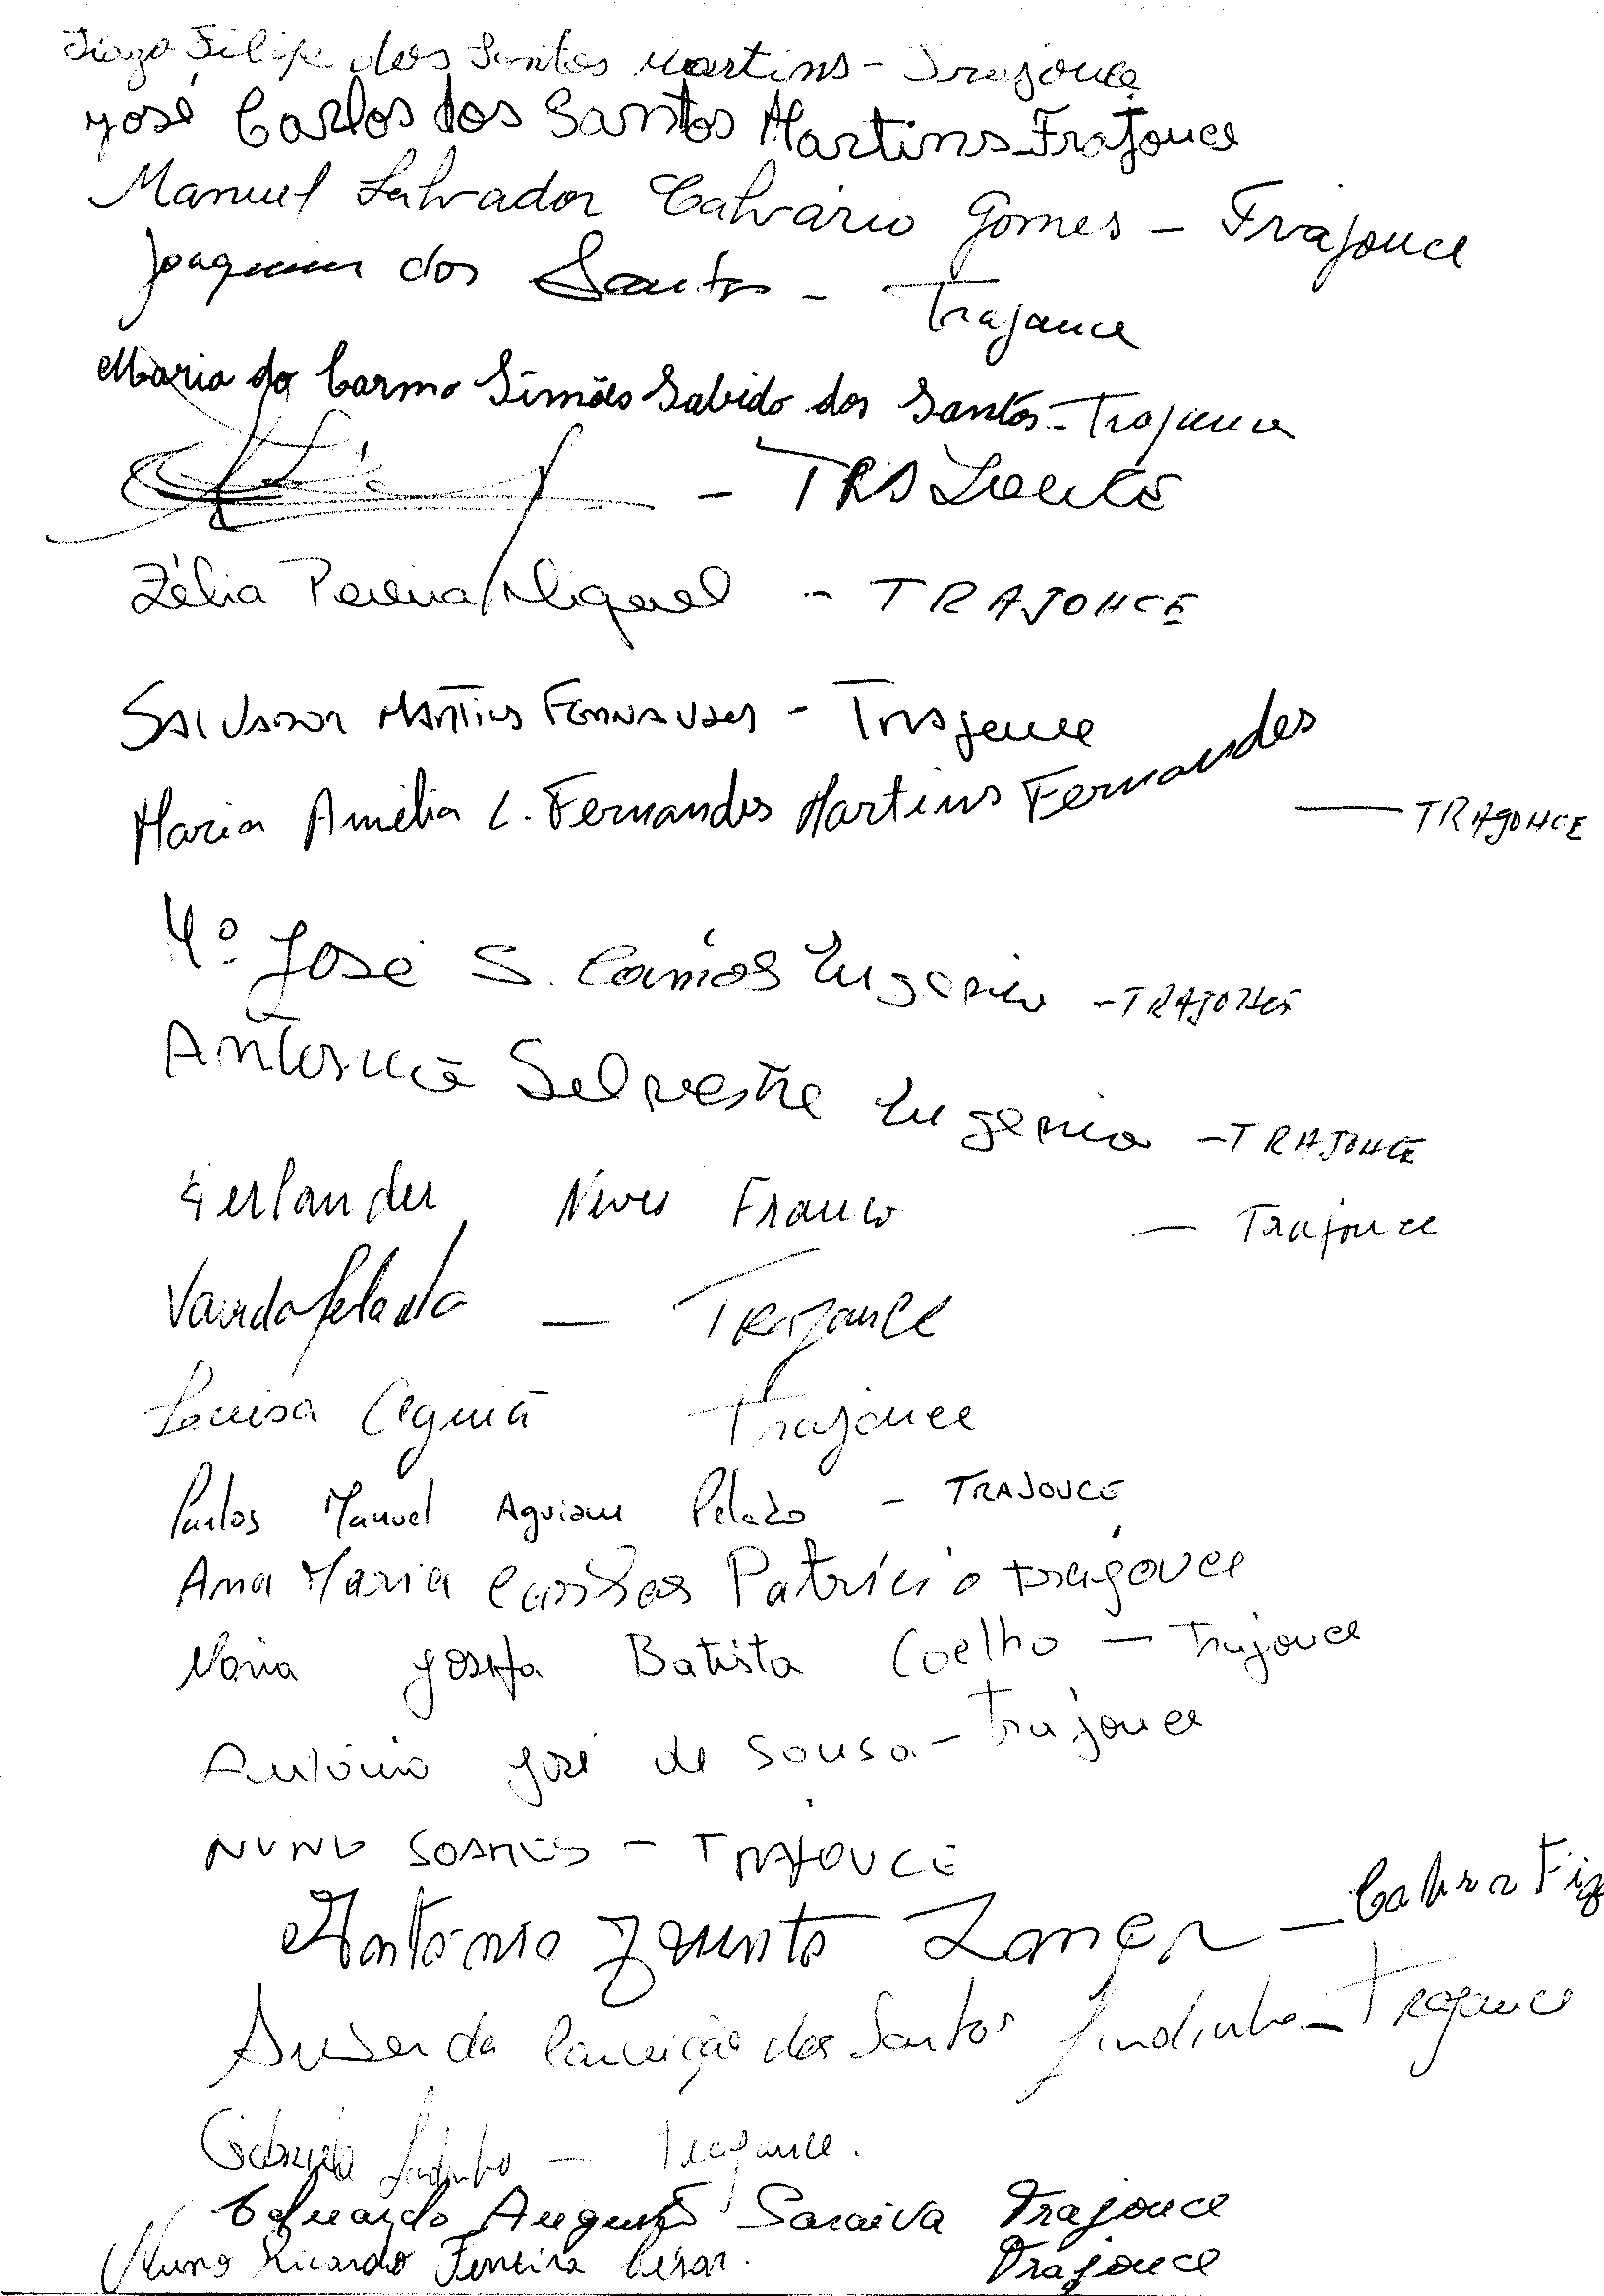 Tiago Filipe dos Santos Martins - Trajouce
José Carlos dos Santos Martins - Trajouce
Manuel Salvador Calvário Gomes - Trajouce
Joaquim dos Santos - Trajouce
Maria do Carmo Simões Sabido dos Santos - Trajouce
- TRAJOUCE
Zélia Pereira Miguel - TRAJOUCE
Salvador Martins Fernandes - Trajouce
Maria Amélia L. Fernandes Martins Fernandes
— TRAJOUCE
José S. Eugenio - TRAJOUCE
Silvestre Eugenio - TRAJOUCE
Neves Franco — Trajouce
Vanda Pelado — Trajouce
Luisa Trajouce
Carlos Manuel Aguiar Pelado - TRAJOUCE
Ana Maria Patrício Trajouce
Maria Josefa Batista Coelho — Trajouce
António José de Sousa - Trajouce
NUNO SOARES - TRAJOUCE
António Lança — Cabra Fig
Conceição dos Santos Lindinho - Trajouce
Gabriela Lindinho — Trajouce.
Eduardo Augusto Saraiva Trajouce
Nuno Ricardo Ferreira César. Trajouce